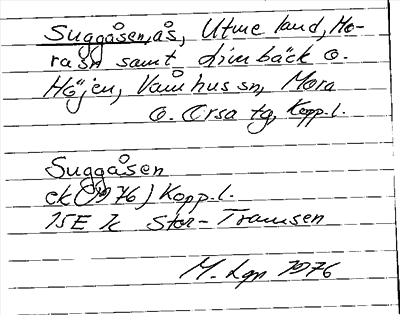 Suggåsen, ås, Utme land, Mo-
ra sn samt
Höjen, Våmhus sn, Mora
o. Orsa tg, Kopp.l.
Suggåsen
ek (1976) Kopp.l.
15E Stor-Tramsen
M. 1976